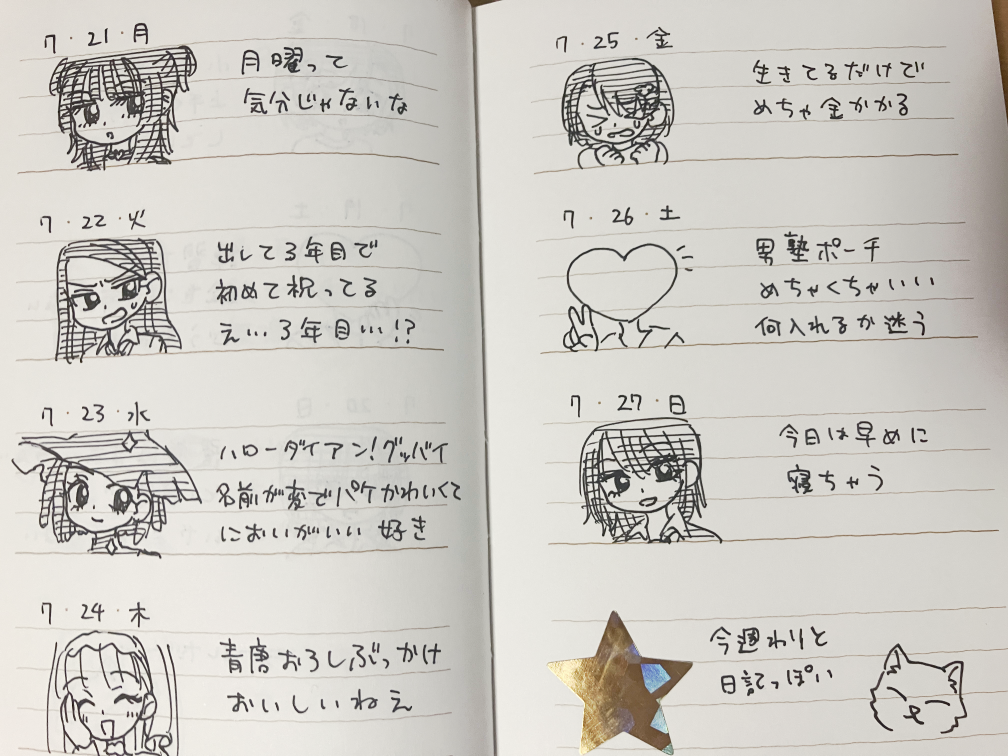 7・21・月
月曜って
気分じゃないな
7・22・火
出して3年目で
初めて祝ってる
えい…3年目い!?
7・23・水
ハローダイアン!グッバイ
名前が変でパケかわいくて
においがいい 好き
7・24・木
青唐おろしぶっかけ
おいしいねえ
7・25・金
生きてるだけで
めちゃ金かかる
7・26・土
男塾ポーチ
めちゃくちゃいい
何入れるか迷う
7・27・日
今日は早めに
寝ちゃう
今週わりと
日記っぽい